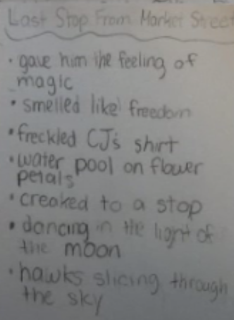 Last Stop From Market Street
• gave him the feeling of
magic
• smelled like freedom
• freckled CJ's shirt
• water pool on flower
petals
• creaked to a stop
• dancing in the light of
the moon
• hawks slicing through
the sky